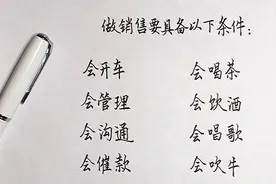 做销售要具备以下条件：
会开车 会喝茶
会管理 会饮酒
会沟通 会唱歌
会催款 会吹牛